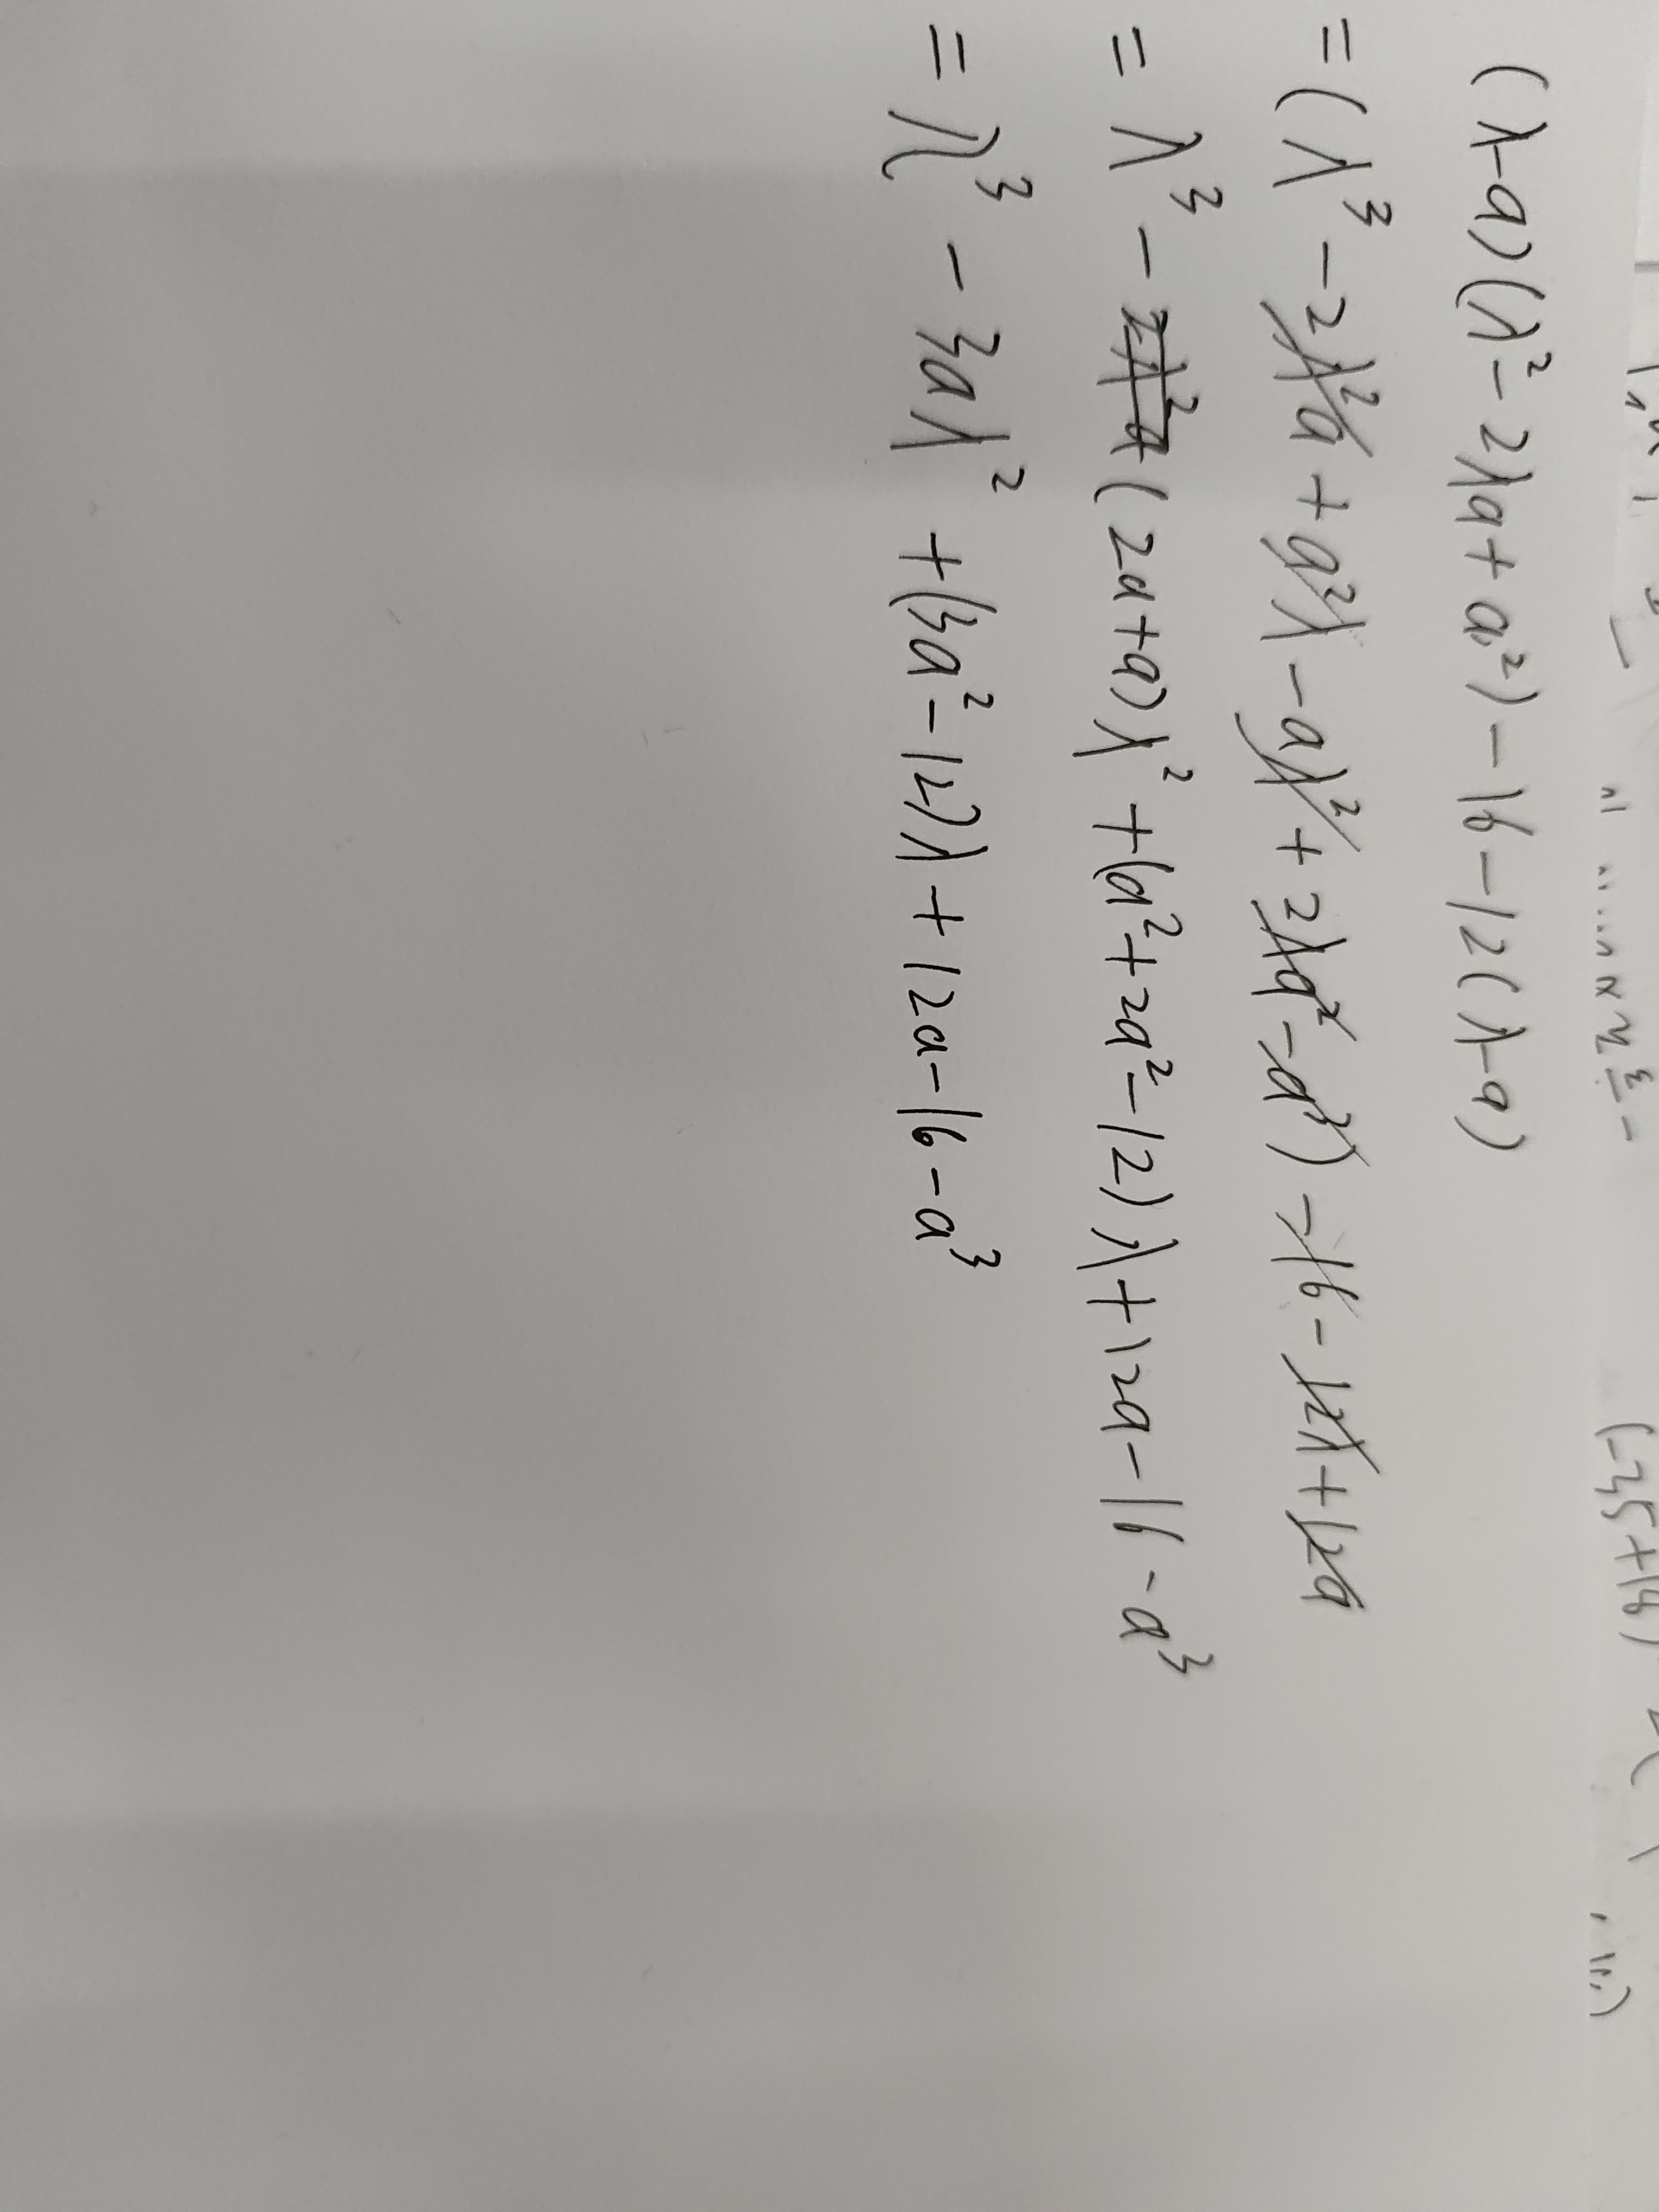 (λ-a)(λ²-2λa+a²)-16-12(λ-a)
=(λ³-2λ²a+a²λ-aλ²+2λa²-a³)-16-12λ+12a
=λ³-2λ²a(2a+a)λ²+(a²+2a²-12)λ+12a-16-a³
=λ³-3aλ²+(3a²-12)λ+12a-16-a³